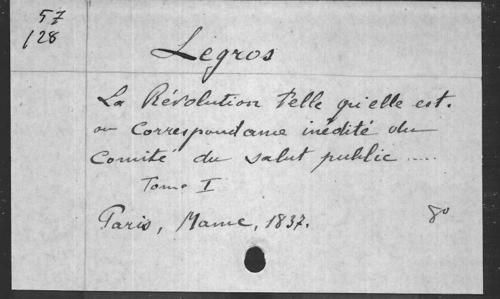 57
128
Legros
La Révolution telle qu'elle est.
ou Correspondance inédité du
Comité du salut public .....
Tome I
Paris, Mame, 1837.
8o